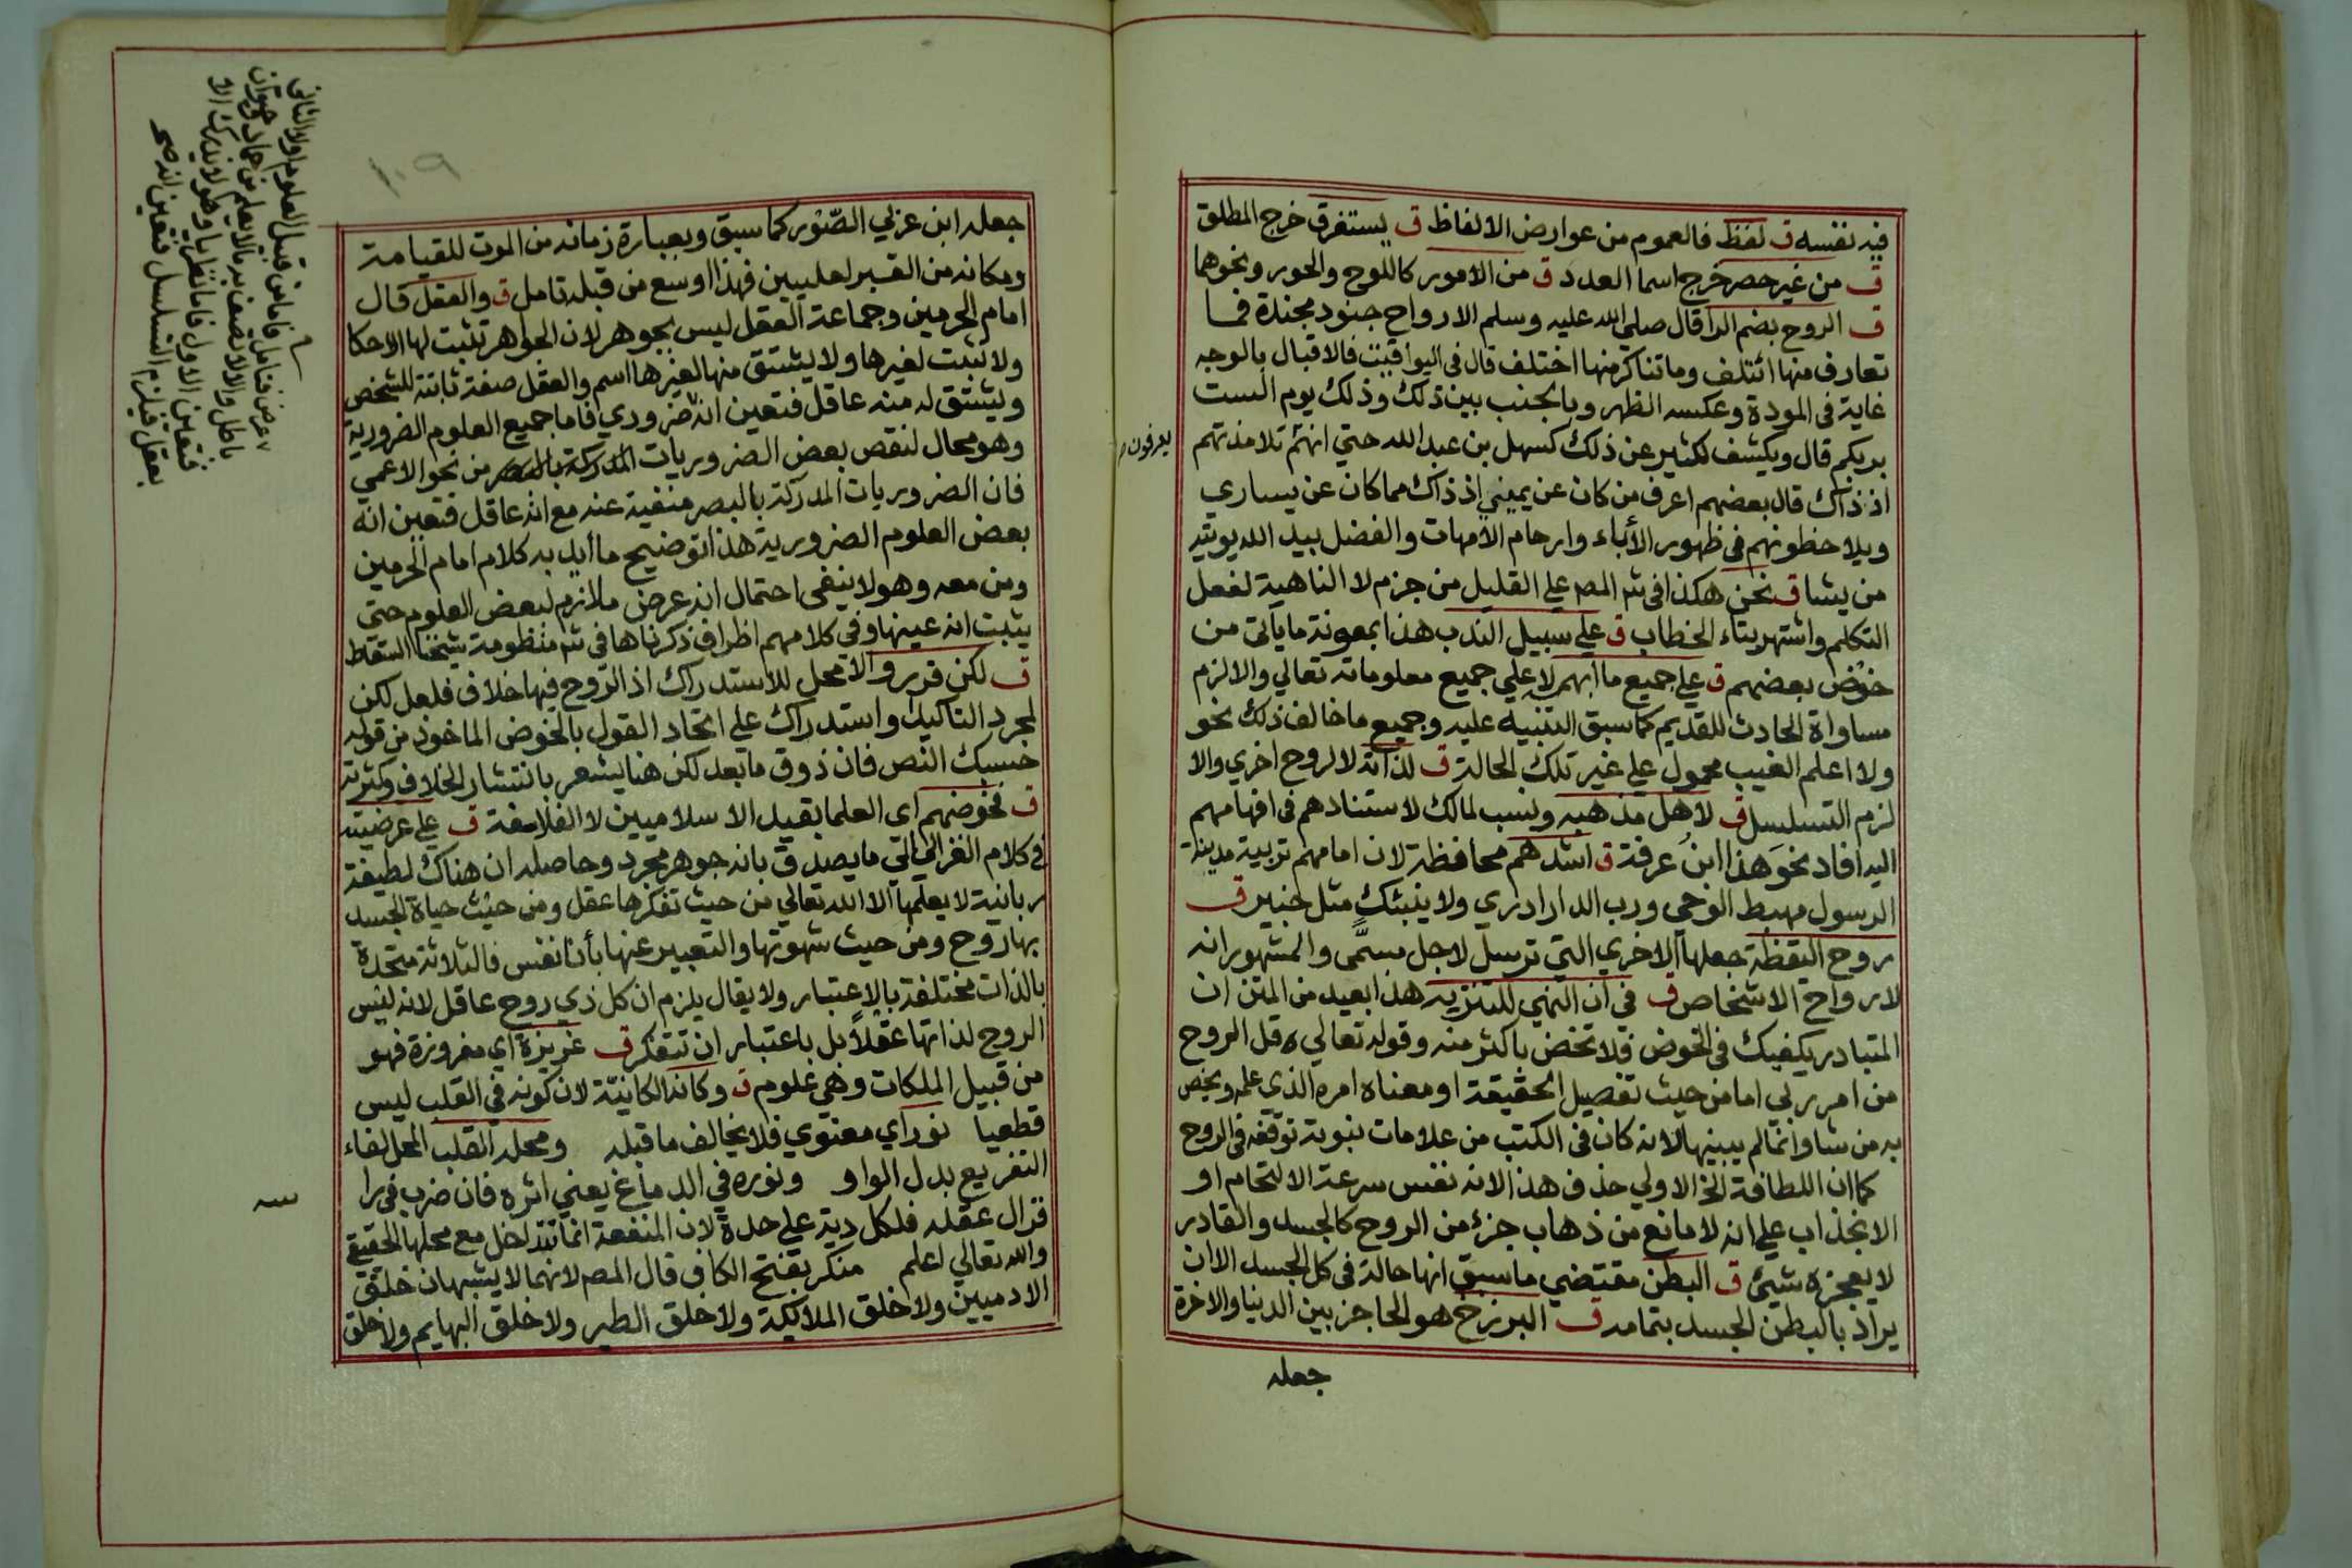 فيه نفسه ق لفظ فالعموم من عوارض الالفاظ ق يستغرق خرج المطلق
ق من غير حصر خرج اسما العدد ق من الامور كاللوح والحور ونحوهما
ق الروح بضم الرا قال صلي الله عليه وسلم الارواح جنود مجندة فما
تعارف منها ائتلف وما تناكر منها اختلف قال في اليواقيت فالاقبال بالوجه
غاية في المودة وعكسه الظهر وبالجنب بين ذلك وذلك يوم الست
بربكم قال ويكشف لكثير عن ذلك كسهل بن عبد الله حتي انهم تلامذتهم
يعرفون
اذ ذاك قال بعضهم اعرف من كان عن يميني اذ ذاك مما كان عن يساري
ويلاحظونهم في ظهور الأباء وارحام الامهات والفضل بيد الله يوتيه
من يشا ق نحن هكذا في شر المص علي القليل من جزم لا الناهية لفعل
التكلم واشتهر بتاء الخطاب ق علي سبيل الندب هذا بمعونة ما ياتي من
خوض بعضهم ق علي جميع ما ابهم لا علي جميع معلوماته تعالي والا لزم
مساواة الحادث للقديم كما سبق التنبيه عليه وجميع ما خالف ذلك نحو
ولا اعلم الغيب محمول علي غير تلك الحالة ق لذاته لا لروح اخري والا
لزم التسلسل ق لاهل مذهبه ونسب لمالك لاستنادهم في افهامهم
اليه افاد نحو هذا ابن عرفة ق اشدهم محافظة لان امامهم تربية مدينة
الرسول مهبط الوحي ورب الدار ادري ولا ينبئك مثل خبير ق
روح اليقظة جعلها الاخري التي ترسل لاجل مسمّى والمشهور انه
لا رواح الاشخاص ق في ان النهي للتنزيه هذا بعيد من المتن ان
المتبادر يكفيك في الخوض فلا تخض باكثر منه وقوله تعالي قل الروح
من امر ربي اما من حيث تفصيل الحقيقة او معناه امره الذي علمه ويخص
به من شا وانما لم يبينها لانه كان في الكتب من علامات نبوته توقفه في الروح
كما ان اللطافة الخ الاولي حذف هذا لانه نفس سرعة الالتحام او
الانجذاب علي انه لا مانع من ذهاب جزء من الروح كالجسد والقادر
لا يعجزه شيئ ق البطن مقتضي ما سبق انها حالة في كل الجسد الا ان
يراد بالبطن الجسد بتمامه ق البرزخ هو الحاجز بين الدنيا والاخرة
جعله
١٠٩
جعله ابن عربي الصّور كما سبق وبعبارة زمانه من الموت للقيامة
ومكانه من القبر لعليين فهذا اوسع من قبله تامل ق والعقل قال
امام الحرمين وجماعة العقل ليس بجوهر لان الجواهر تثبت لها الاحكا
ولا تثبت لغيرها ولا يشتق منها لغيرها اسم والعقل صفة ثابتة للشخص
ويشتق له منه عاقل فتعين انه ضروري فاما جميع العلوم الضرورية
وهو محال لنقص بعض الضروريات المدركة بالبصر من نحو الاعمي
فان الضروريات المدركة بالبصر منفية عنه مع انه عاقل فتعين انه
بعض العلوم الضرورية هذا توضيح ما أيد به كلام امام الحرمين
ومن معه وهو لا ينفي احتمال انه عرض ملازم لبعض العلوم حتى
يثبت انه عينها وفي كلامهم اظراف ذكرناها في شر منظومة شيخنا السقاط
ق لكن قرروا لا محل للاستدراك اذ الروح فيها خلاف فلعل لكن
لمجرد التاكيد واستدراك علي اتحاد القول بالخوض الماخوذ من قوله
حسبك النص فان ذوق ما بعد لكن هنا يشعر بانتشار الخلاف وكثرته
ق فخوضهم اي العلما بقيد الاسلاميين لا الفلاسفة ق علي عرضيته
في كلام الغزالي ما يصدق بانه جوهر مجرد وحاصله ان هناك لطيفة
ربانية لا يعلمها الا الله تعالي من حيث تفكرها عقل ومن حيث حياة الجسد
بها روح ومن حيث شهوتها والتعبير عنها بأنا نفس فالثلاثة متحدة
بالذات مختلفة بالاعتبار ولا يقال يلزم ان كل ذي روح عاقل لانه ليس
الروح لذاتها عقلاً بل باعتبار ان تتفكر ق غريزة اي مغروزة فهو
من قبيل الملكات وهي علوم ق وكانه الكانيّة لان كونه في القلب ليس
قطعيا نور اي معنوي فلا يخالف ما قبله ومحله القلب المحل لفاء
التفريع بدل الواو ونوره في الدماغ يعني اثره فان ضرب في را
فزال عقله فلكل دية علي حدة لان المنفعة انما تتداخل مع محلها الحقيقي
والله تعالي اعلم منكر بفتح الكاف قال المص لانهما لا يشبهان خلق
الادميين ولا خلق الملائكة ولا خلق الطير ولا خلق البهايم ولا خلق
عرض فتامل فاما من قبيل العلوم اولا والثاني
باطل والا لاتصف به ما لا يعلم من جماد وحيوان
فتعين الاول فاما نظريا وهو لا يدرك الا
بعقل فيلزم التسلسل فتعين انه صح